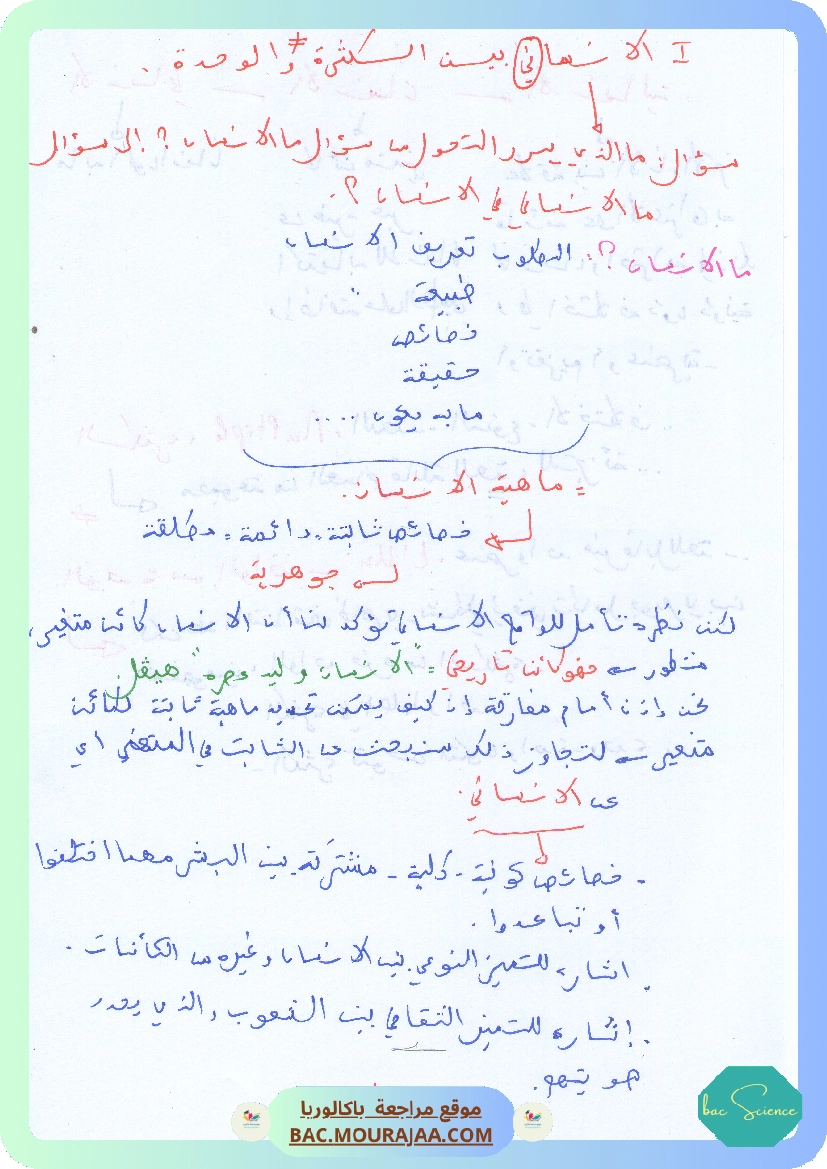 I الانساني بين الكثرة ≠ والوحدة.
سؤال: ما الذي يبرر التحول من سؤال ما الانسان؟ الى سؤال
ما الانساني في الانسان؟.
ما الانسان؟: المطلوب تعريف الانسان
طبيعة :
خصائص
حقيقة
ما به يكون ....
= ماهية الانسان.
خصائص ثابتة، دائمة، مطلقة
جوهرية
لكن نظرة تأمل للواقع الانساني تؤكد لنا أن الانسان كائن متغير،
متطور → فهو كائن تاريخي = "الانسان وليد عصره" هيقل
نحن إذن أمام مفارقة إذ كيف يمكن تحديد ماهية ثابتة لكائن
متغير → لتجاوز ذلك سنبحث عن الثابت في المتغير أي
عن الانساني.
- خصائص كونية - كلية - مشتركة بين البشر مهما اختلفوا
أو تباعدوا.
. اشارة للتميز النوعي بين الانسان وغيره من الكائنات.
. إشارة للتميز الثقافي بين الشعوب والذي يحدد
هويتهم.
موقع مراجعة باكالوريا
BAC.MOURAJAA.COM
bac Science